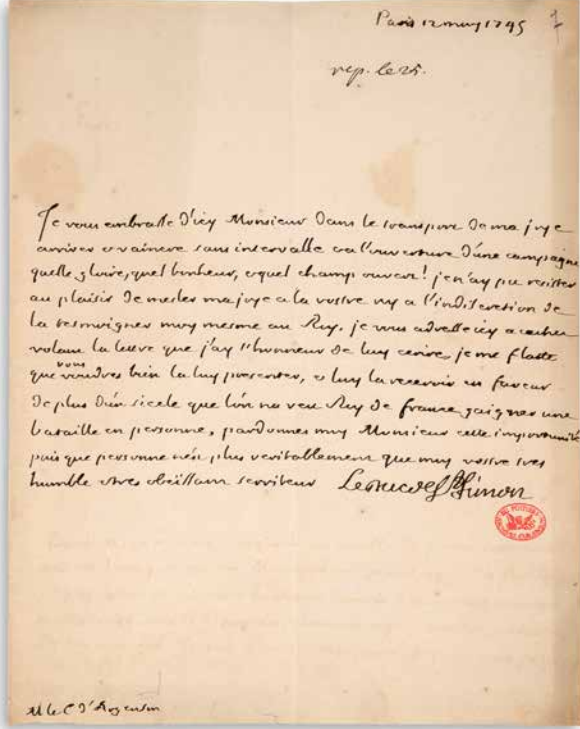 Paris 12 may 1745
7
rep. le 25.
Je vous embrasse d'icy Monsieur dans le transport de ma joye
arriver et vaincre sans intervalle et a l'ouverture d'une campagne
quelle gloire, quel bonheur, et quel champ ouvert! je n'ay pu resister
au plaisir de mesler ma joye a la vostre ny a l'indiscretion de
la tesmoigner moy mesme au Roy. je vous adresse icy a cachet
volant la lettre que j'ay l'honneur de luy ecrire, je me flatte
que vous voudres bien la luy presenter, et luy la recevoir en faveur
de plus d'un siecle que l'on na veu Roy de france gaigner une
bataille en personne, pardonnes moy Monsieur cette importunité
puis que personne n'est plus veritablement que moy vostre tres
humble et tres obeissant serviteur Le duc de St Simon
M le C d'Argenson